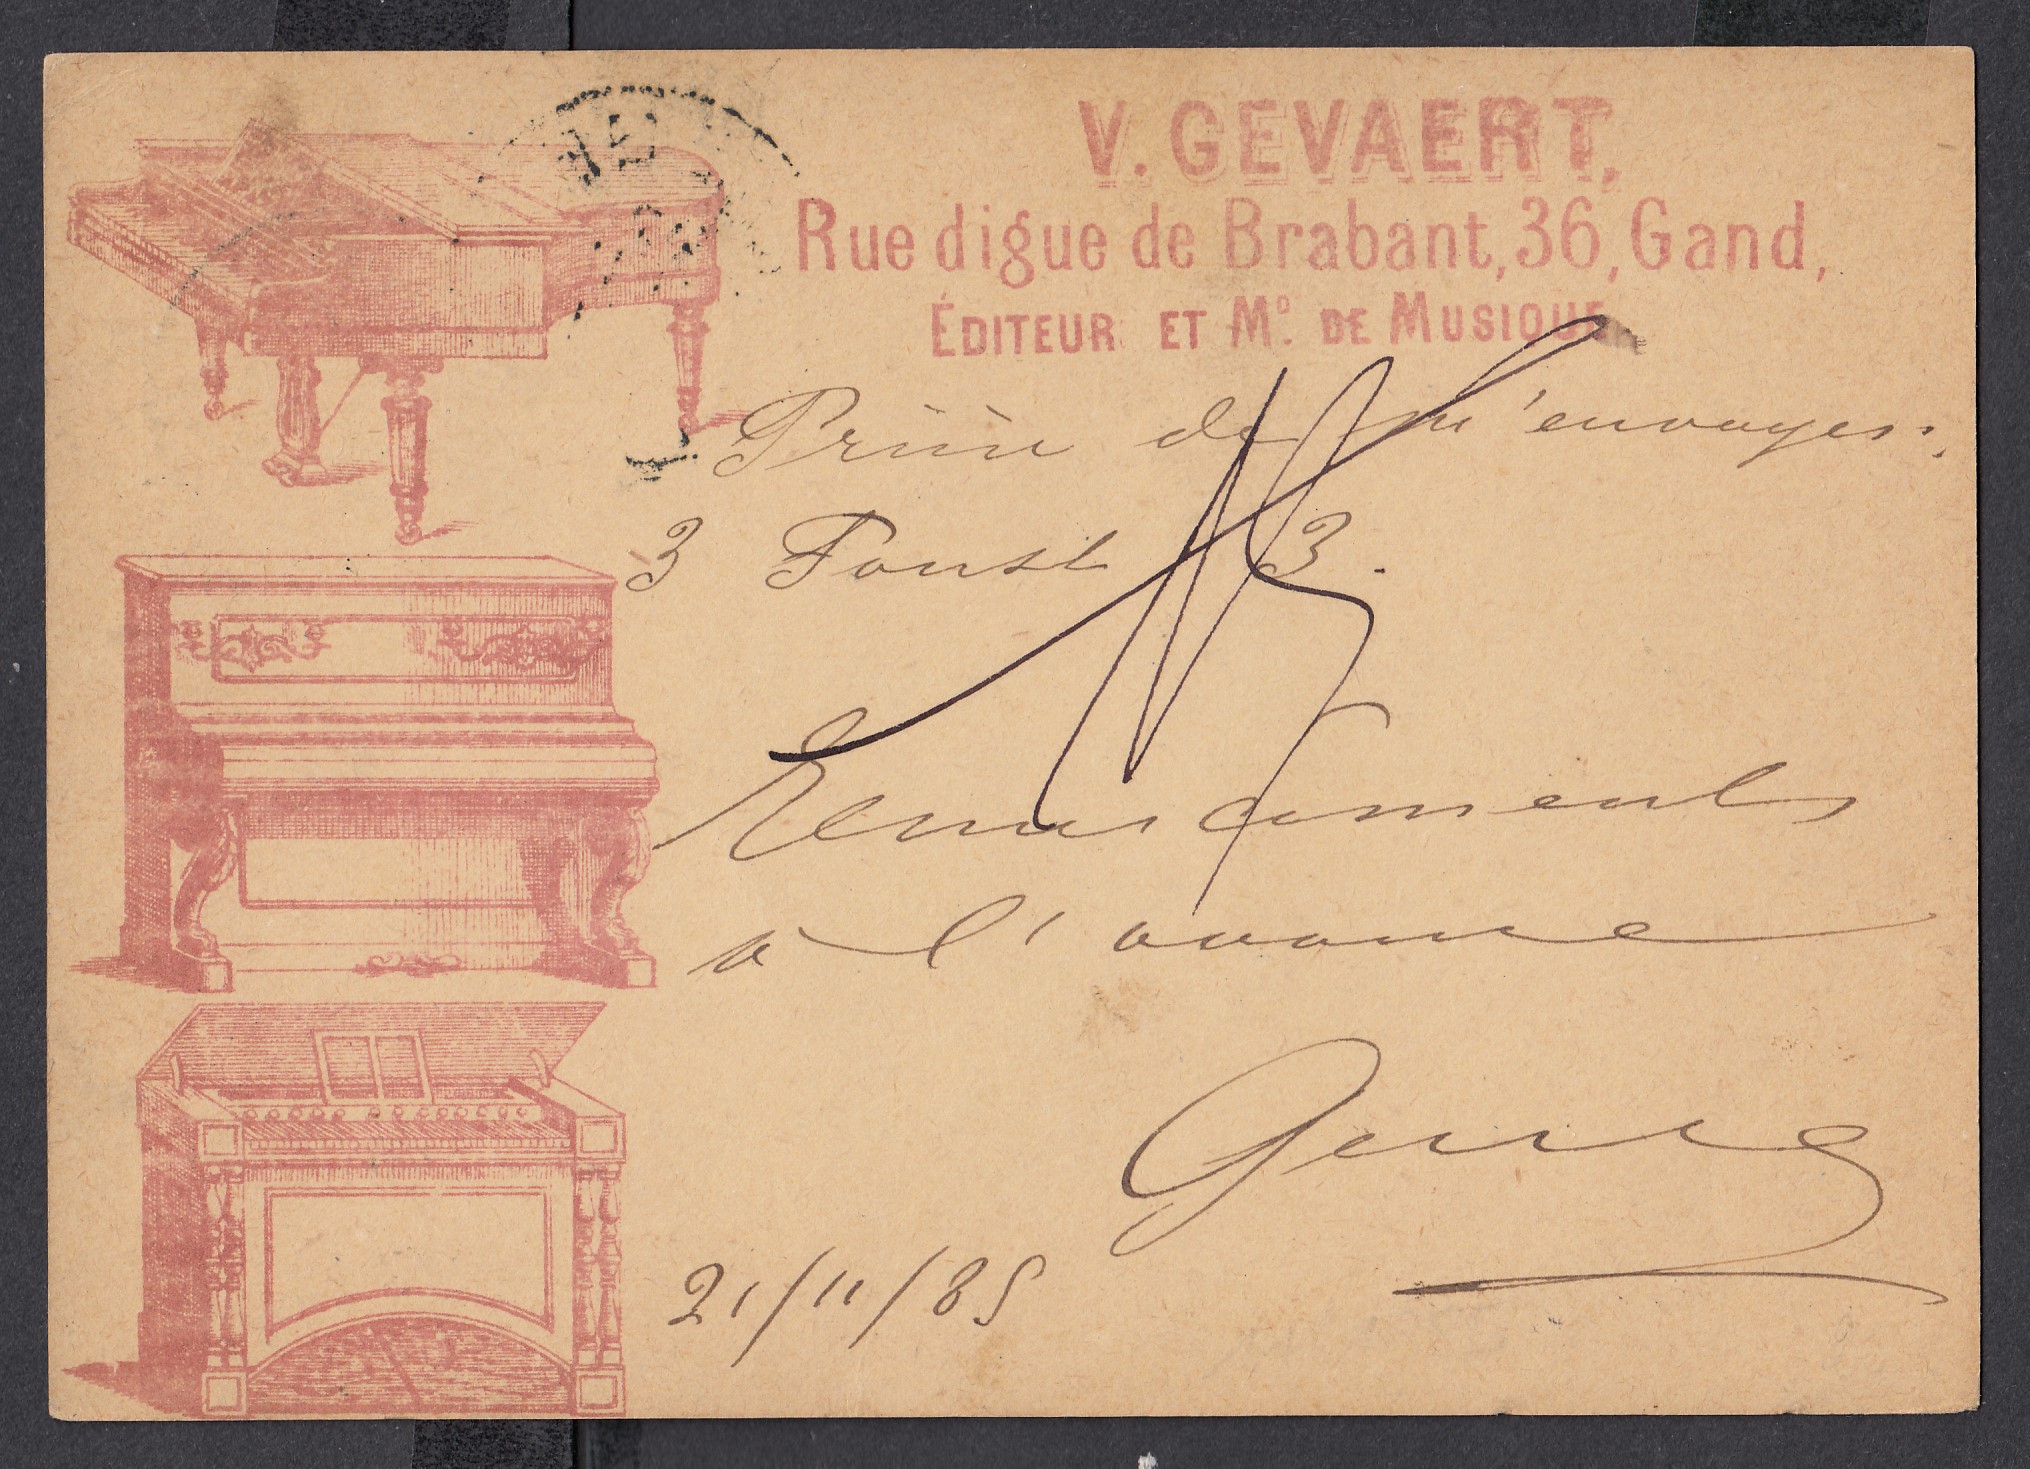 V. GEVAERT,
Rue digue de Brabant, 36, Gand,
ÉDITEUR ET Mᴰ. DE MUSIQUE
Prière de m'envoyer:
3 Faust 3.
Remerciements
à l'avance
21/11/85